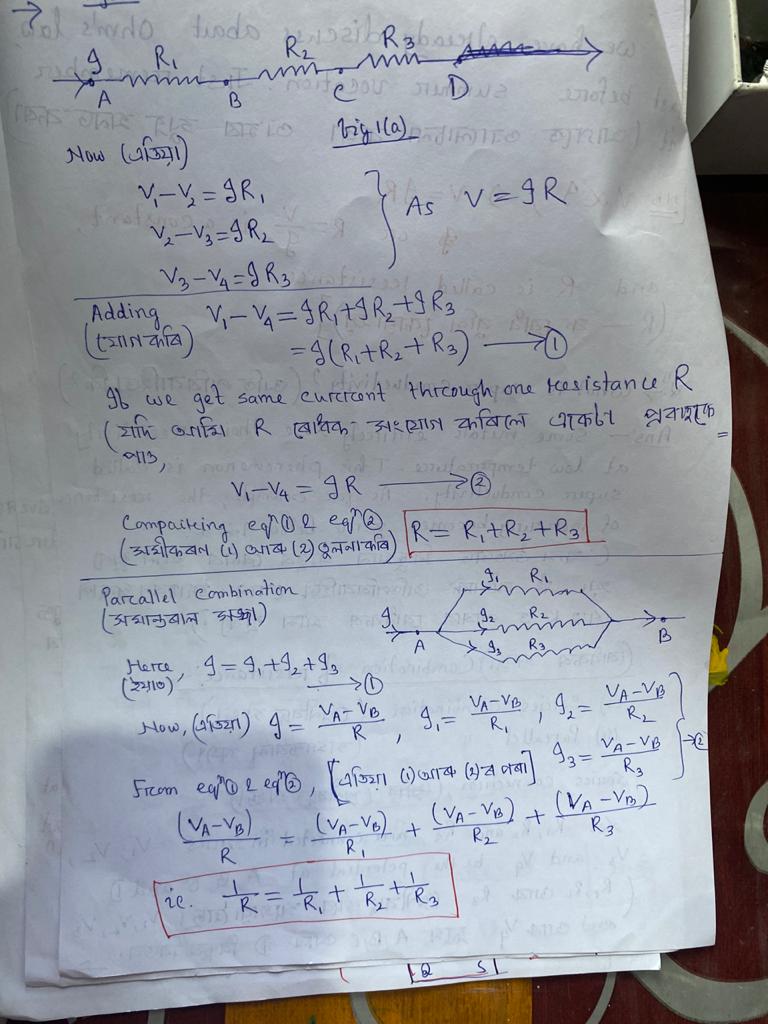 I R₁ R₂ R₃
A B C D
fig 1(a)
Now (এতিয়া)
V₁-V₂ = IR₁
V₂-V₃ = IR₂
V₃-V₄ = IR₃
As V = IR
Adding V₁-V₄ = IR₁+IR₂+IR₃
(যোগ কৰি) = I(R₁+R₂+R₃) → ①
If we get same current through one resistance R
(যদি আমি R ৰোধক সংযোগ কৰিলে একেটা প্ৰবাহকে
পাও,
V₁-V₄ = IR → ②
Comparing eqⁿ① & eqⁿ② R = R₁+R₂+R₃
(সমীকৰণ (1) আৰু (2) তুলনা কৰি)
Parallel Combination
(সমান্তৰাল সজ্জা)
I A I₁ R₁ I₂ R₂ I₃ R₃ B
Here, I = I₁+I₂+I₃
(ইয়াত) → ①
Now, (এতিয়া) I = (V_A-V_B)/R , I₁ = (V_A-V_B)/R₁ , I₂ = (V_A-V_B)/R₂
I₃ = (V_A-V_B)/R₃ → ②
From eqⁿ① & eqⁿ②, [এতিয়া (1) আৰু (2)ৰ পৰা]
(V_A-V_B)/R = (V_A-V_B)/R₁ + (V_A-V_B)/R₂ + (V_A-V_B)/R₃
ie. 1/R = 1/R₁ + 1/R₂ + 1/R₃